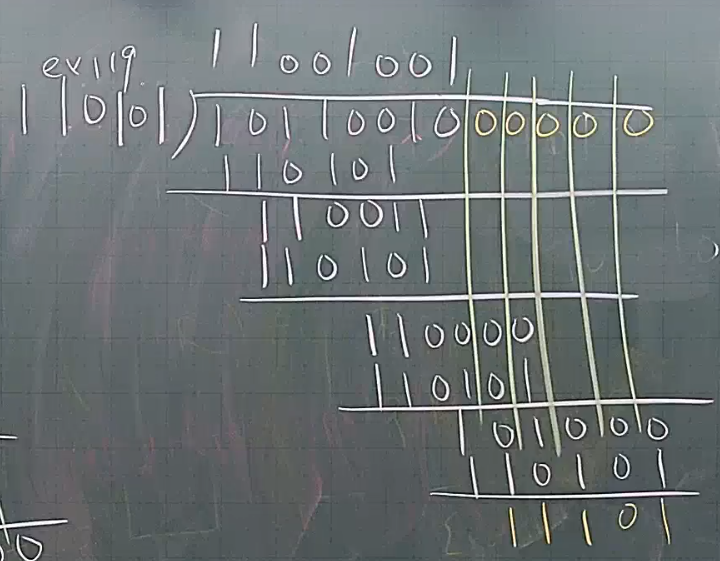 11001001
ex119
110101)1011001000000
110101
110011
110101
110000
110101
101000
110101
11101
0